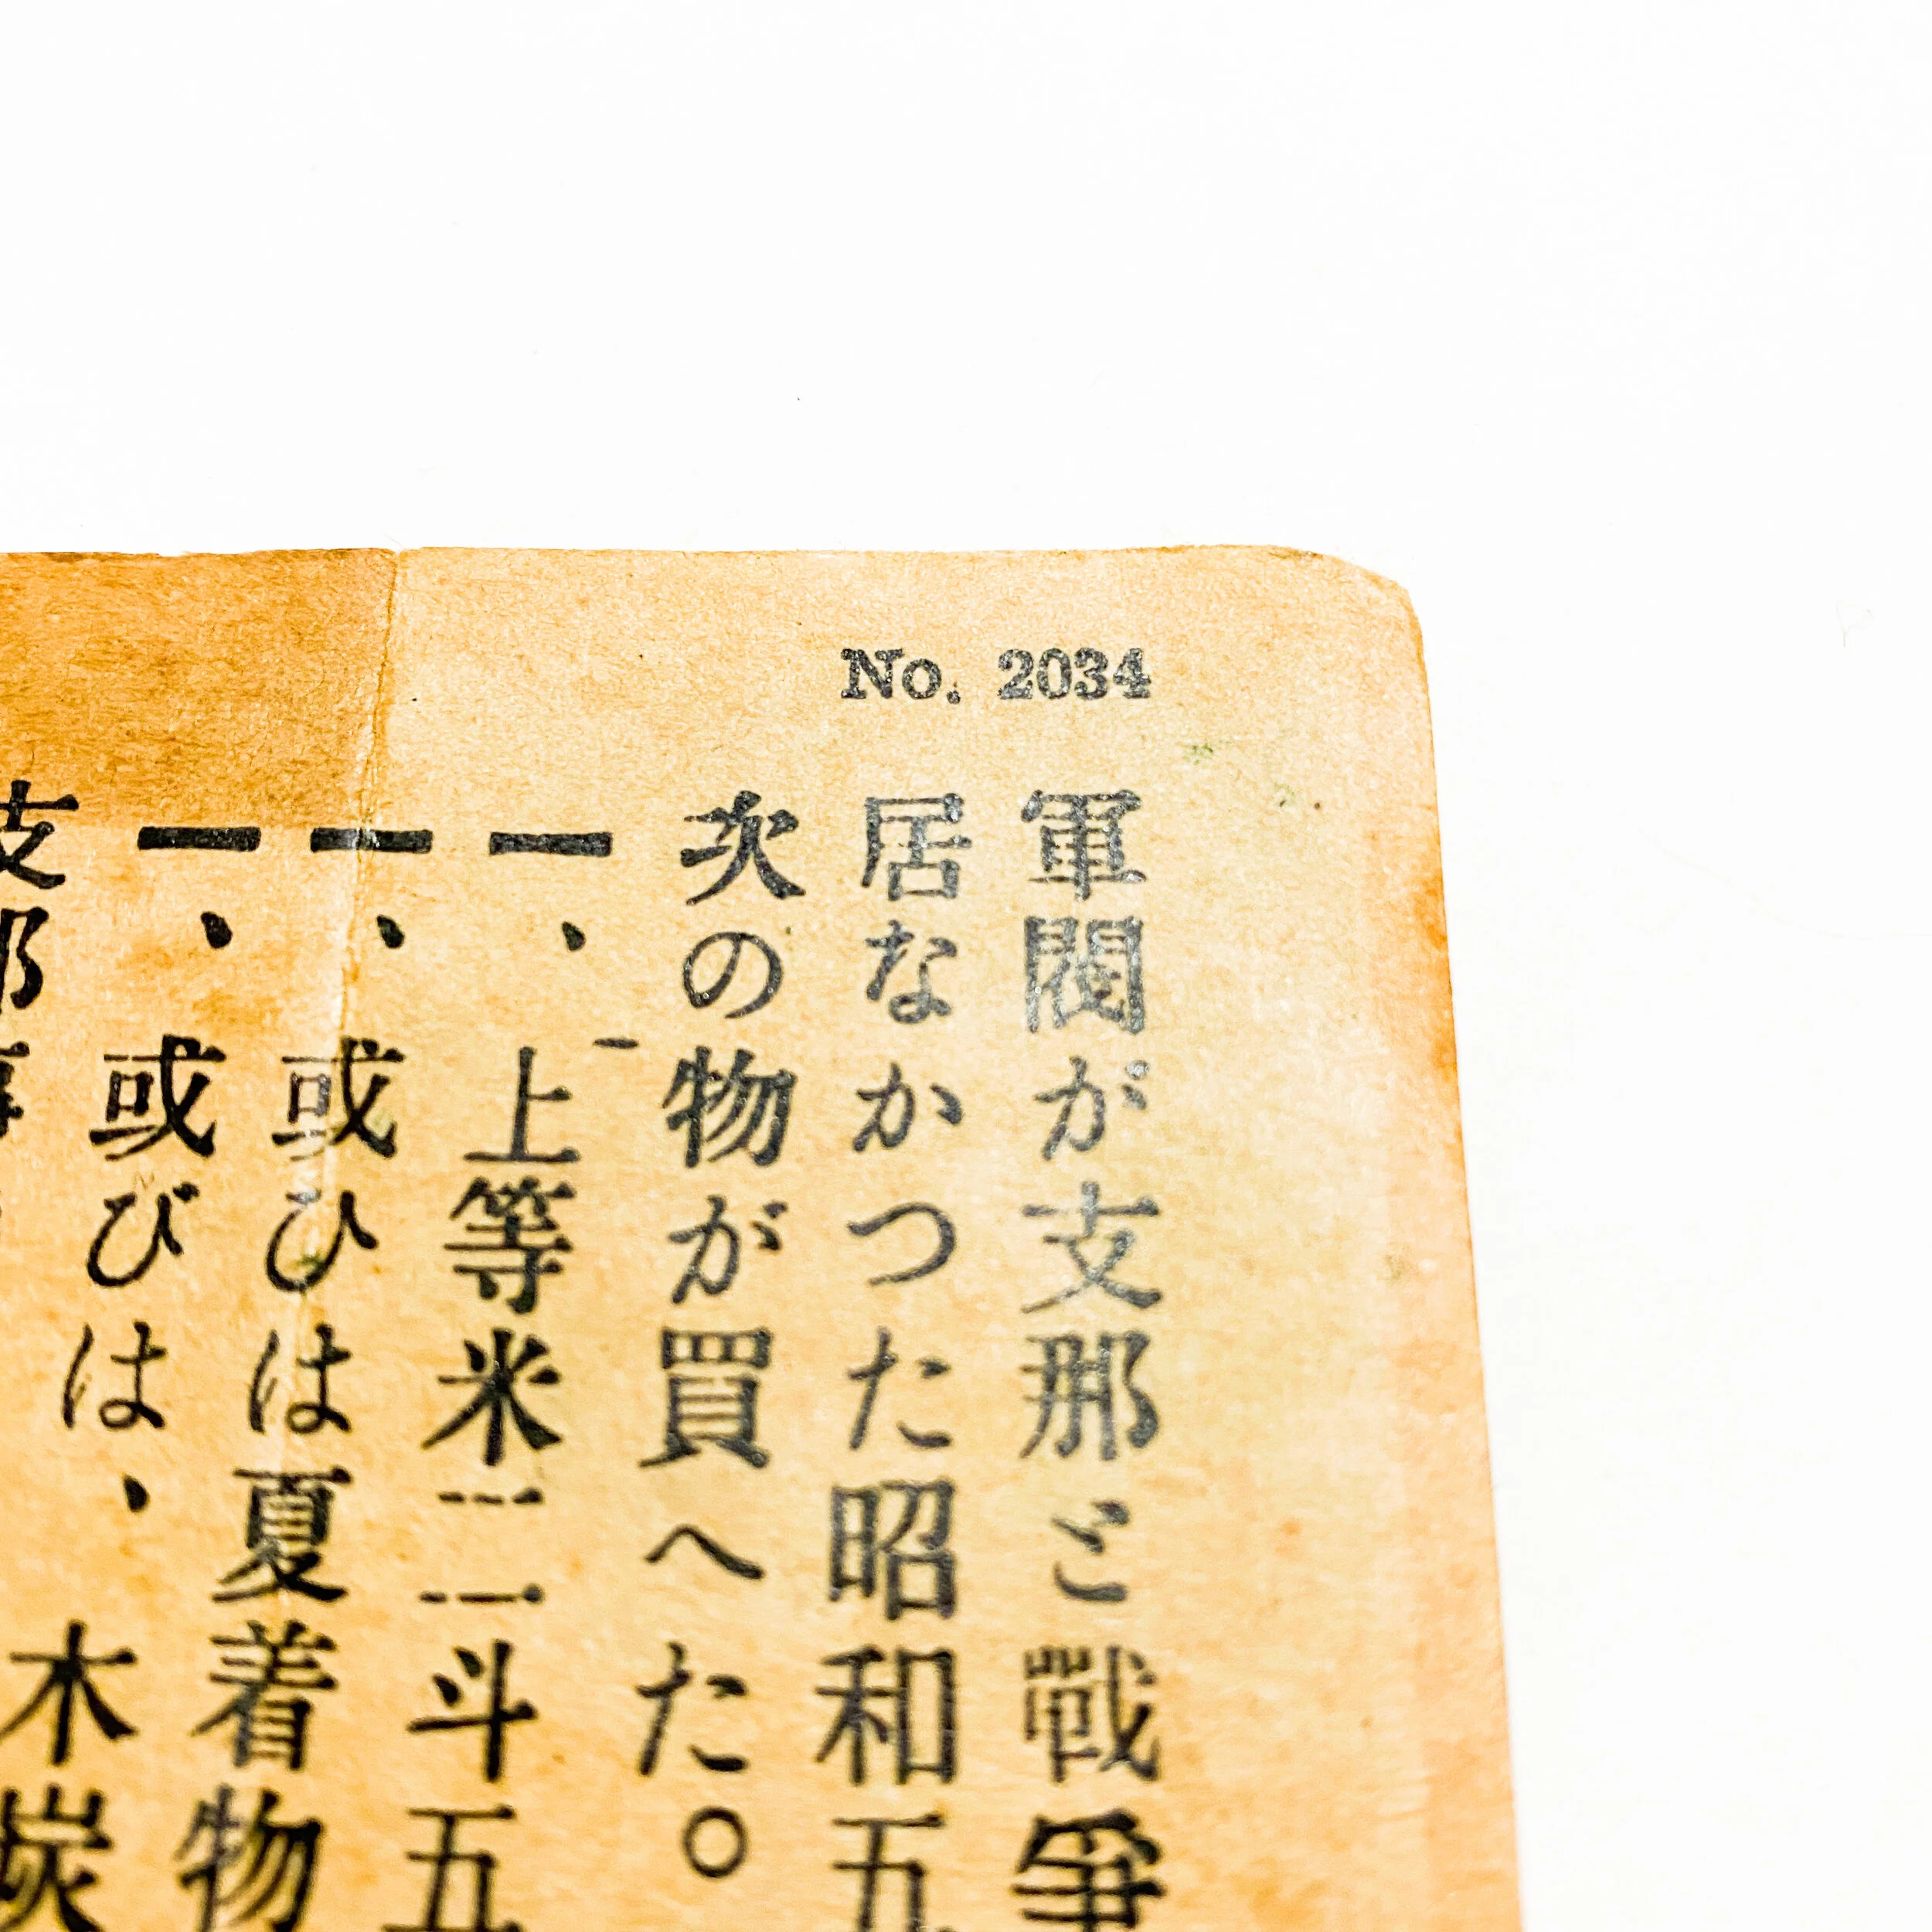 No. 2034
軍閥が支那と戰爭
居なかつた昭和五
次の物が買へた。
一、上等米二斗五
一、或ひは夏着物
一、或びは、木炭
支那事